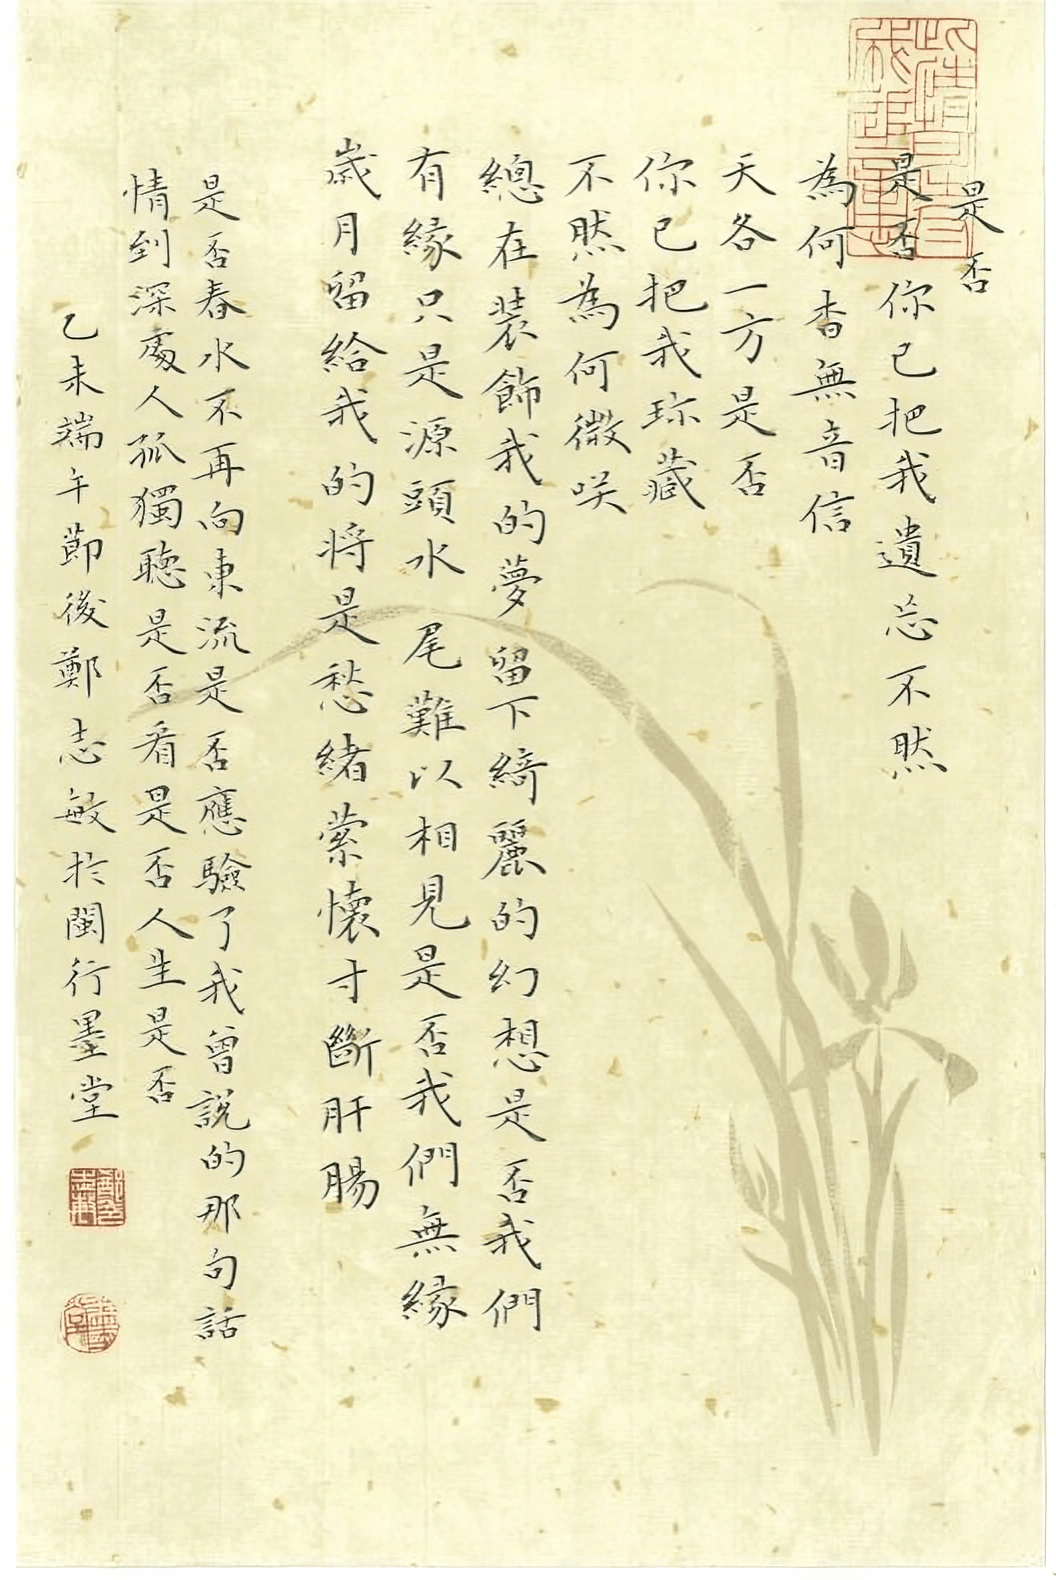 是否
是否你已把我遺忘不然
為何杳無音信
天各一方是否
你已把我珎藏
不然為何微咲
總在裝飾我的夢留下綺麗的幻想是否我們
有緣只是源頭水尾難以相見是否我們無緣
歲月留給我的将是愁緒縈懷寸斷肝腸
是否春水不再向東流是否應驗了我曾說的那句話
情到深處人孤獨聽是否看是否人生是否
乙未端午節後鄭志敏於閩行墨堂